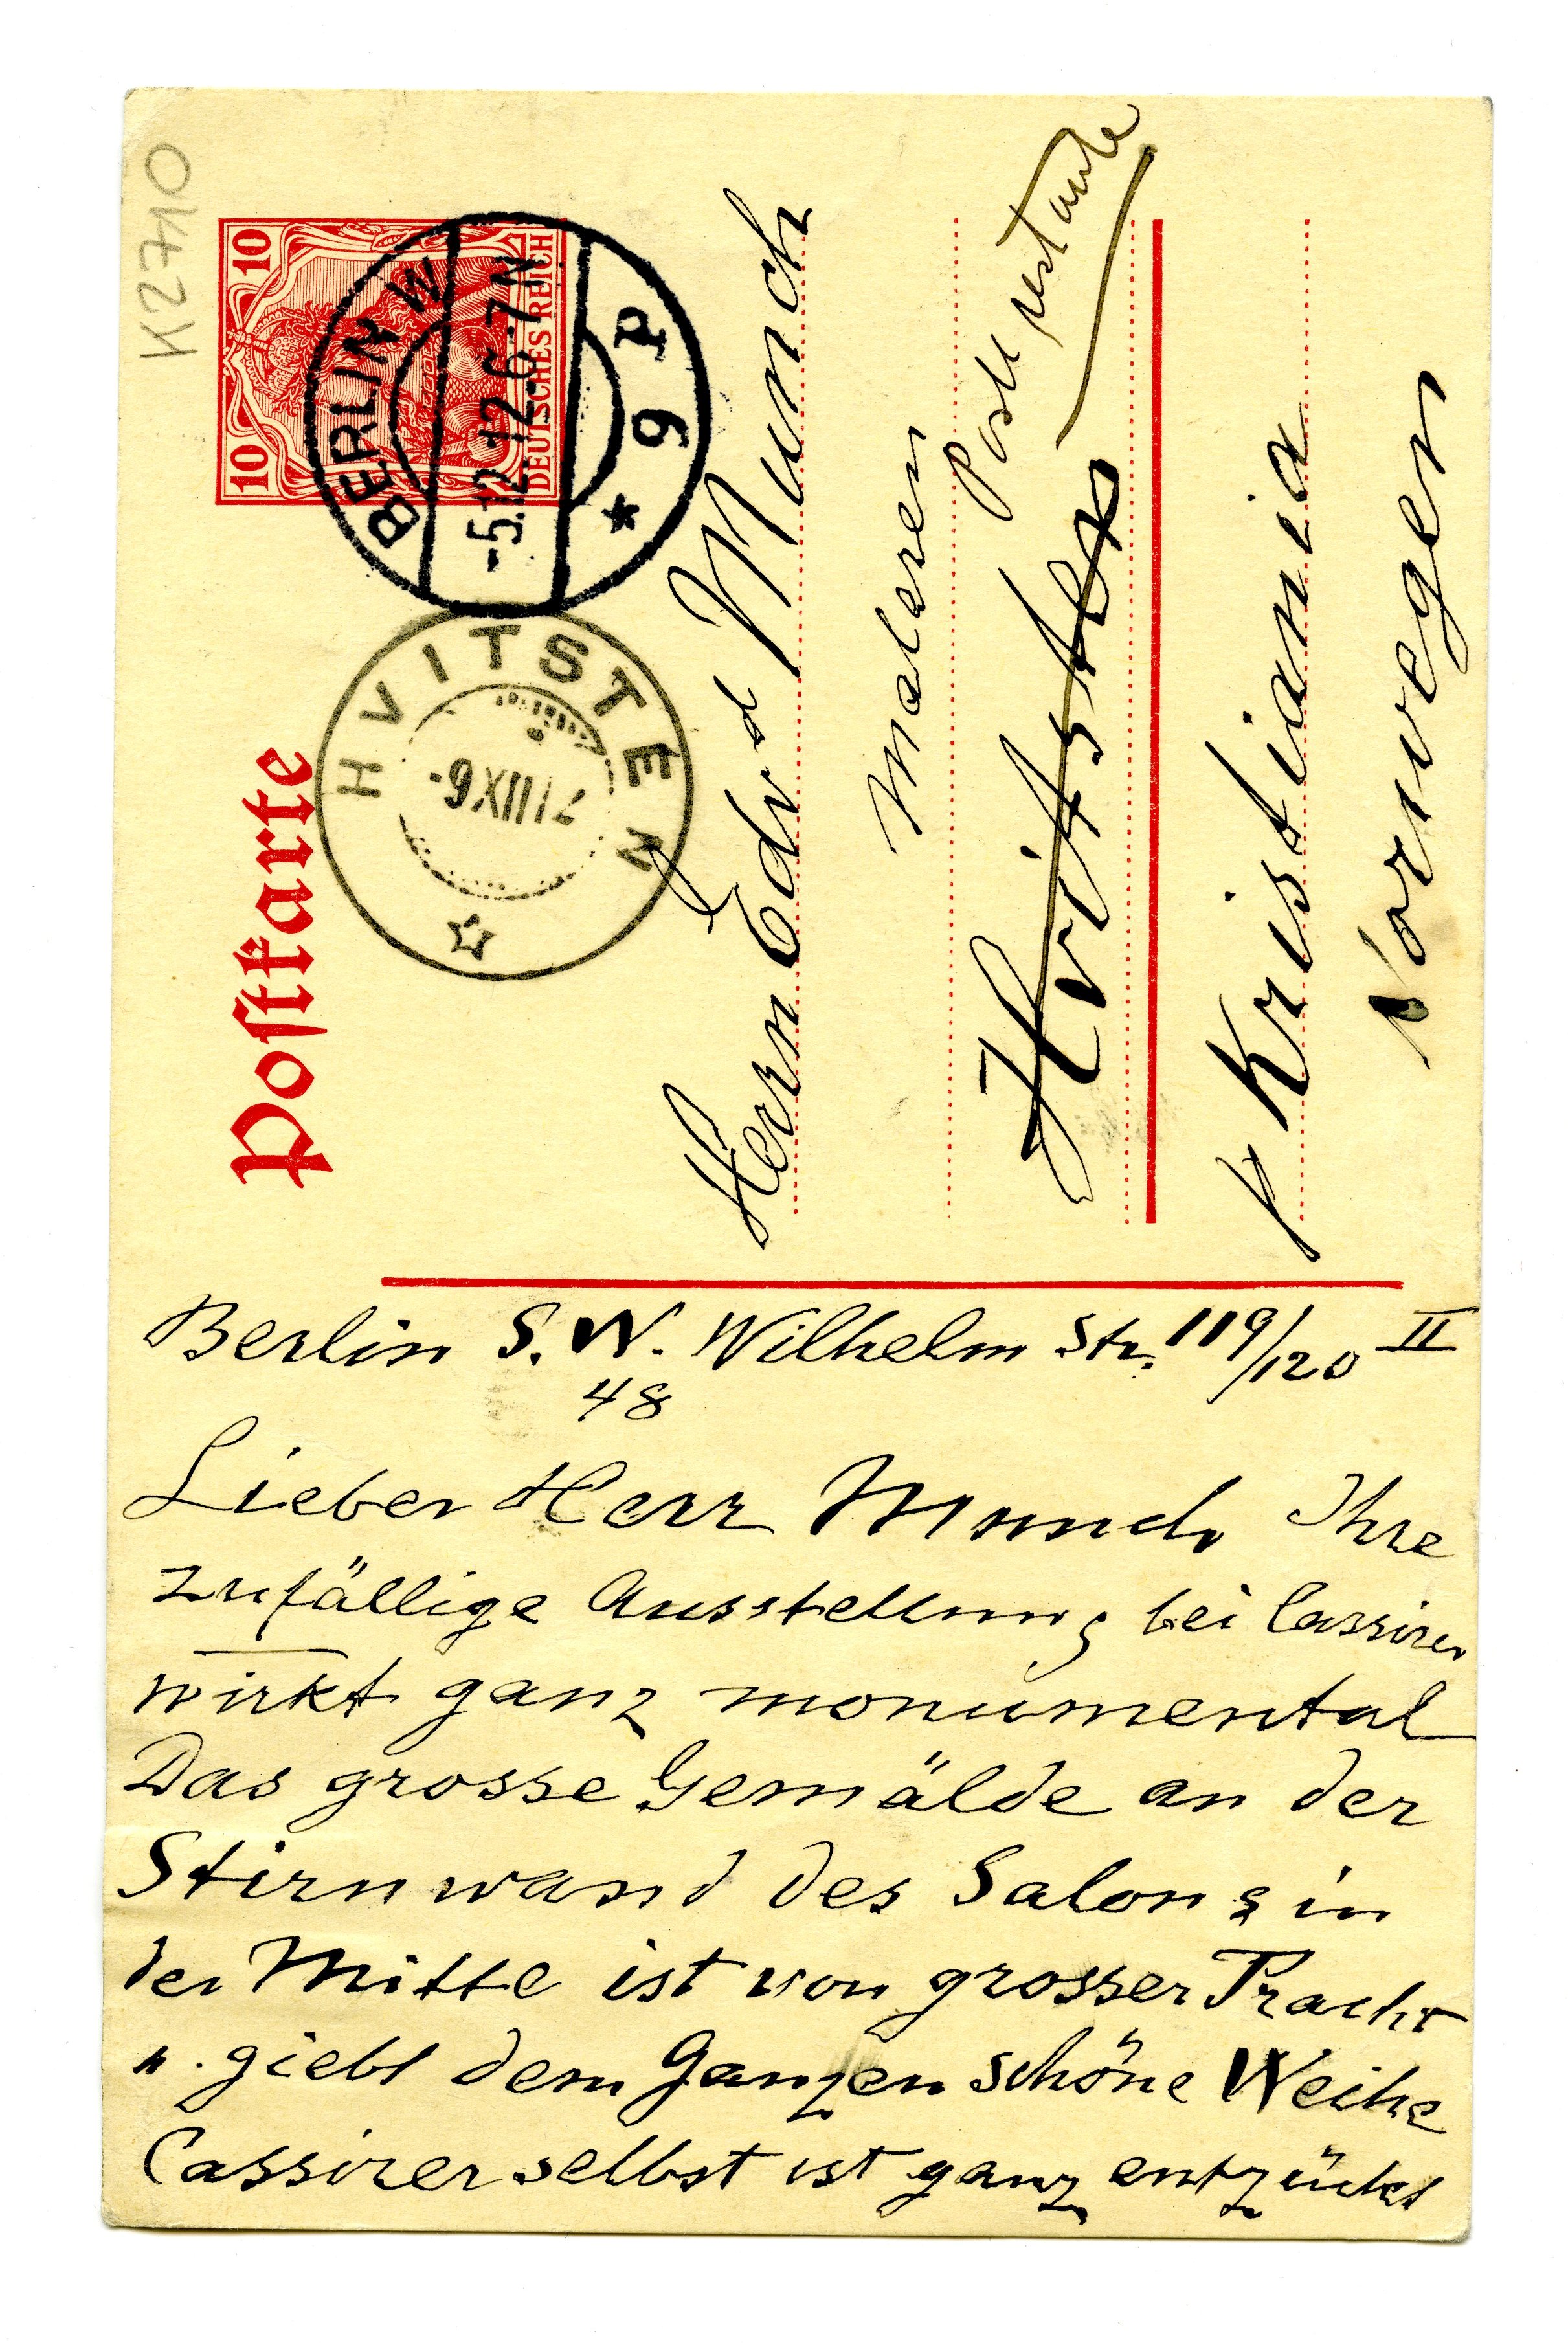 K2710
Postkarte
10 10
DEUTSCHES REICH
BERLIN W
-5.12.12.6-7N
* 9 P
HVITSTEN
-9 XII 12
Herrn Edvd Munch
Maleren
Poste restante
Hvitsten
p Kristiania
Norwegen
Berlin S.W. Wilhelm Str. 119/120 II
48
Lieber Herr Munch Ihre
zufällige Ausstellung bei Cassirer
wirkt ganz monumental
Das grosse Gemälde an der
Stirnwand des Salons in
der Mitte ist von grosser Pracht
u. giebt dem Ganzen schöne Weihe
Cassirer selbst ist ganz entzückt